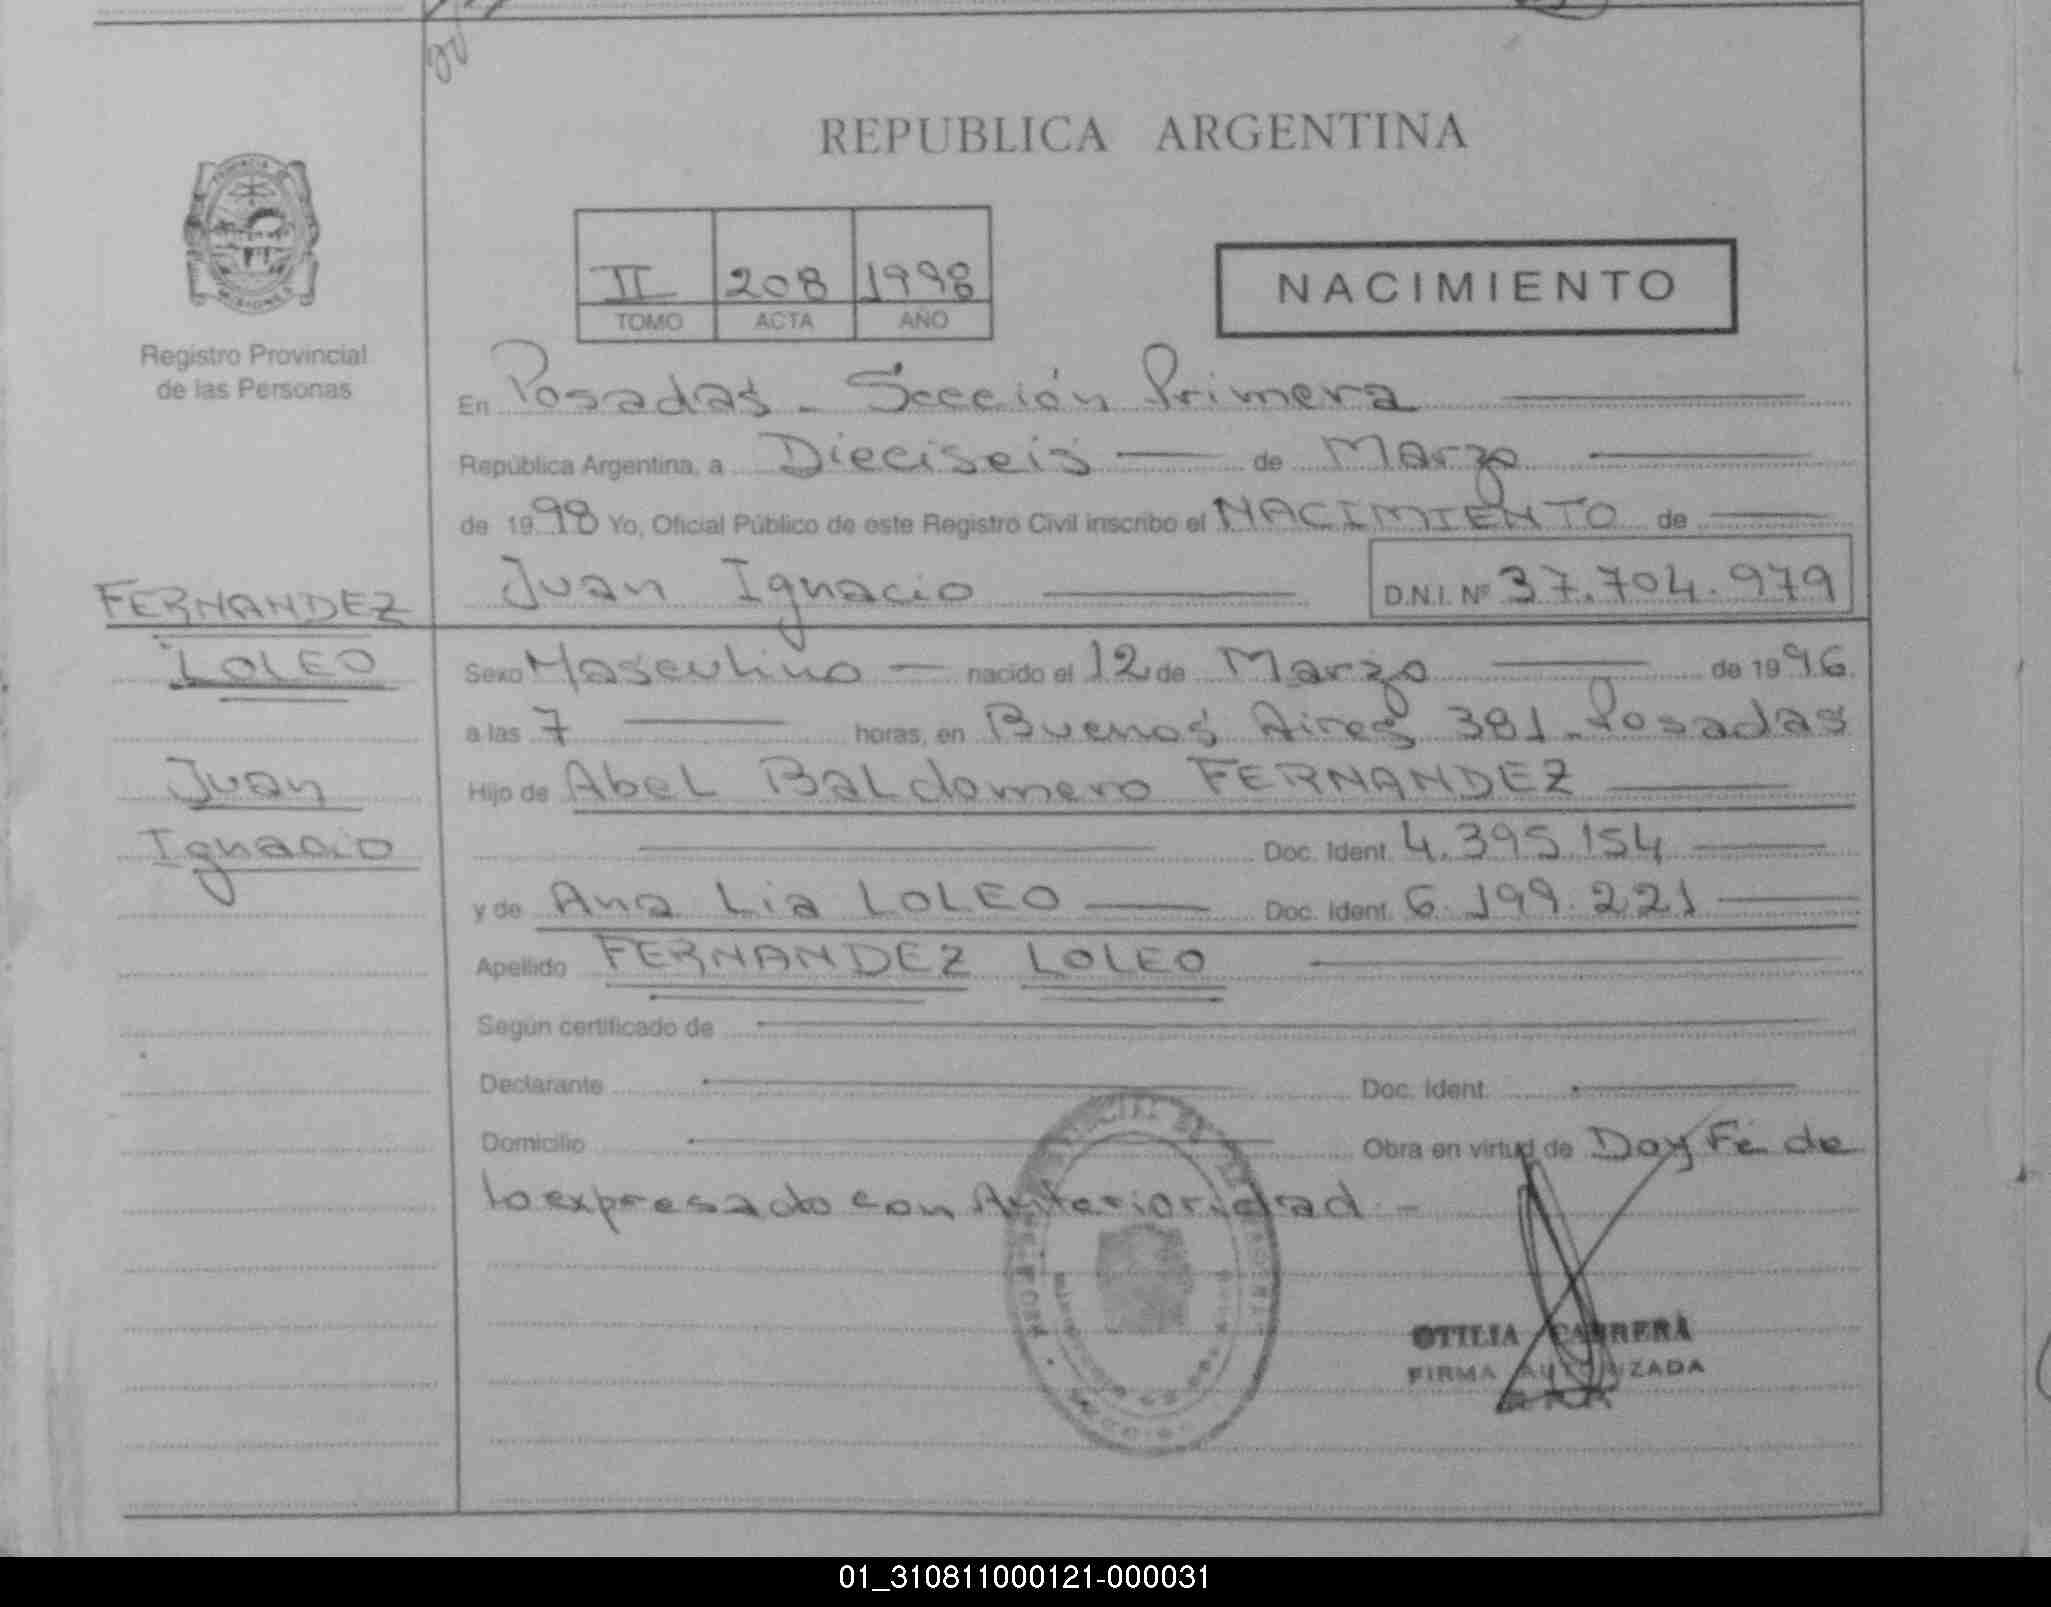 REPUBLICA ARGENTINA
II 208 1998
TOMO ACTA AÑO
NACIMIENTO
Registro Provincial
de las Personas
En Posadas - Sección Primera
República Argentina, a Dieciseis de Marzo
de 1998 Yo, Oficial Público de este Registro Civil inscribo el NACIMIENTO de
Juan Ignacio D.N.I. Nº 37.704.979
FERNANDEZ
LOLEO
Juan
Ignacio
Sexo Masculino nacido el 12 de Marzo de 1996.
a las 7 horas, en Buenos Aires 381 - Posadas
Hijo de Abel Baldomero FERNANDEZ
Doc. Ident. 4.395.154
y de Ana Lia LOLEO Doc. Ident. 6.199.221
Apellido FERNANDEZ LOLEO
Según certificado de
Declarante Doc. Ident.
Domicilio Obra en virtud de Doy Fé de
lo expresado con Anterioridad.-
OTILIA CABRERA
FIRMA AUTORIZADA
01_310811000121-000031